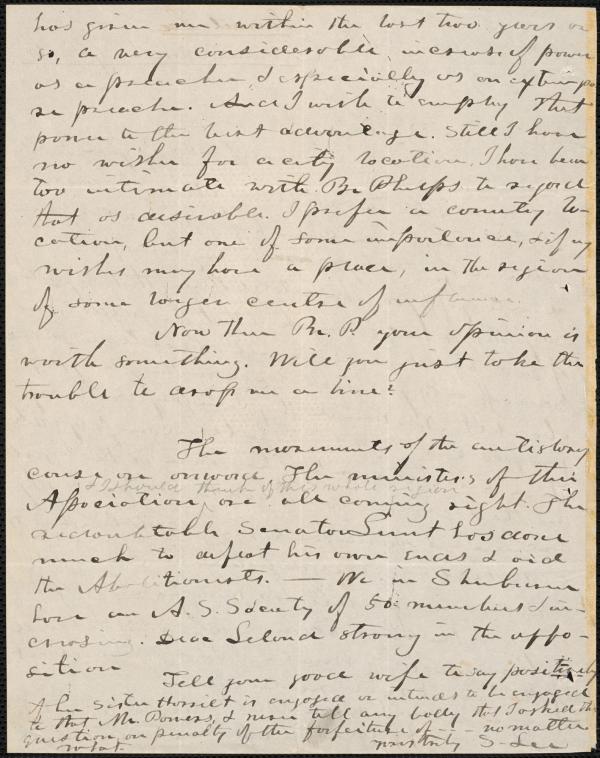 has given me within the last two years or
so, a very considerable increase of power
as a preacher, & especially as an extempo
re preacher. And I wish to employ that
power to the best advantage. Still I have
no wishes for a city location. I have been
too intimate with Br. Phelps to regard
that as desirable. I prefer a country lo-
cation, but one of some importance, & if my
wishes may have a place, in the region
of some larger centre of influence.
Now then Br. P. your opinion is
worth something. Will you just take the
trouble to drop me a line?
The movements of the antislavery
cause are onward. The ministers of this
& I should think of this whole region
Association, are all coming right. The
redoubtable Senator Lunt has done
much to defeat his own ends & aid
the Abolitionists. — We in Sherburne
have an A. S. Society of 50 members & in-
creasing. Deac Leland strong in the oppo-
sition
Tell your good wife to say positively
if her Sister Harriet is engaged or intends to be engaged
to that Mr. Powers, & never tell any body that I asked the
question on penalty of the forfeiture of - - - no matter
what. yours truly S. Lee